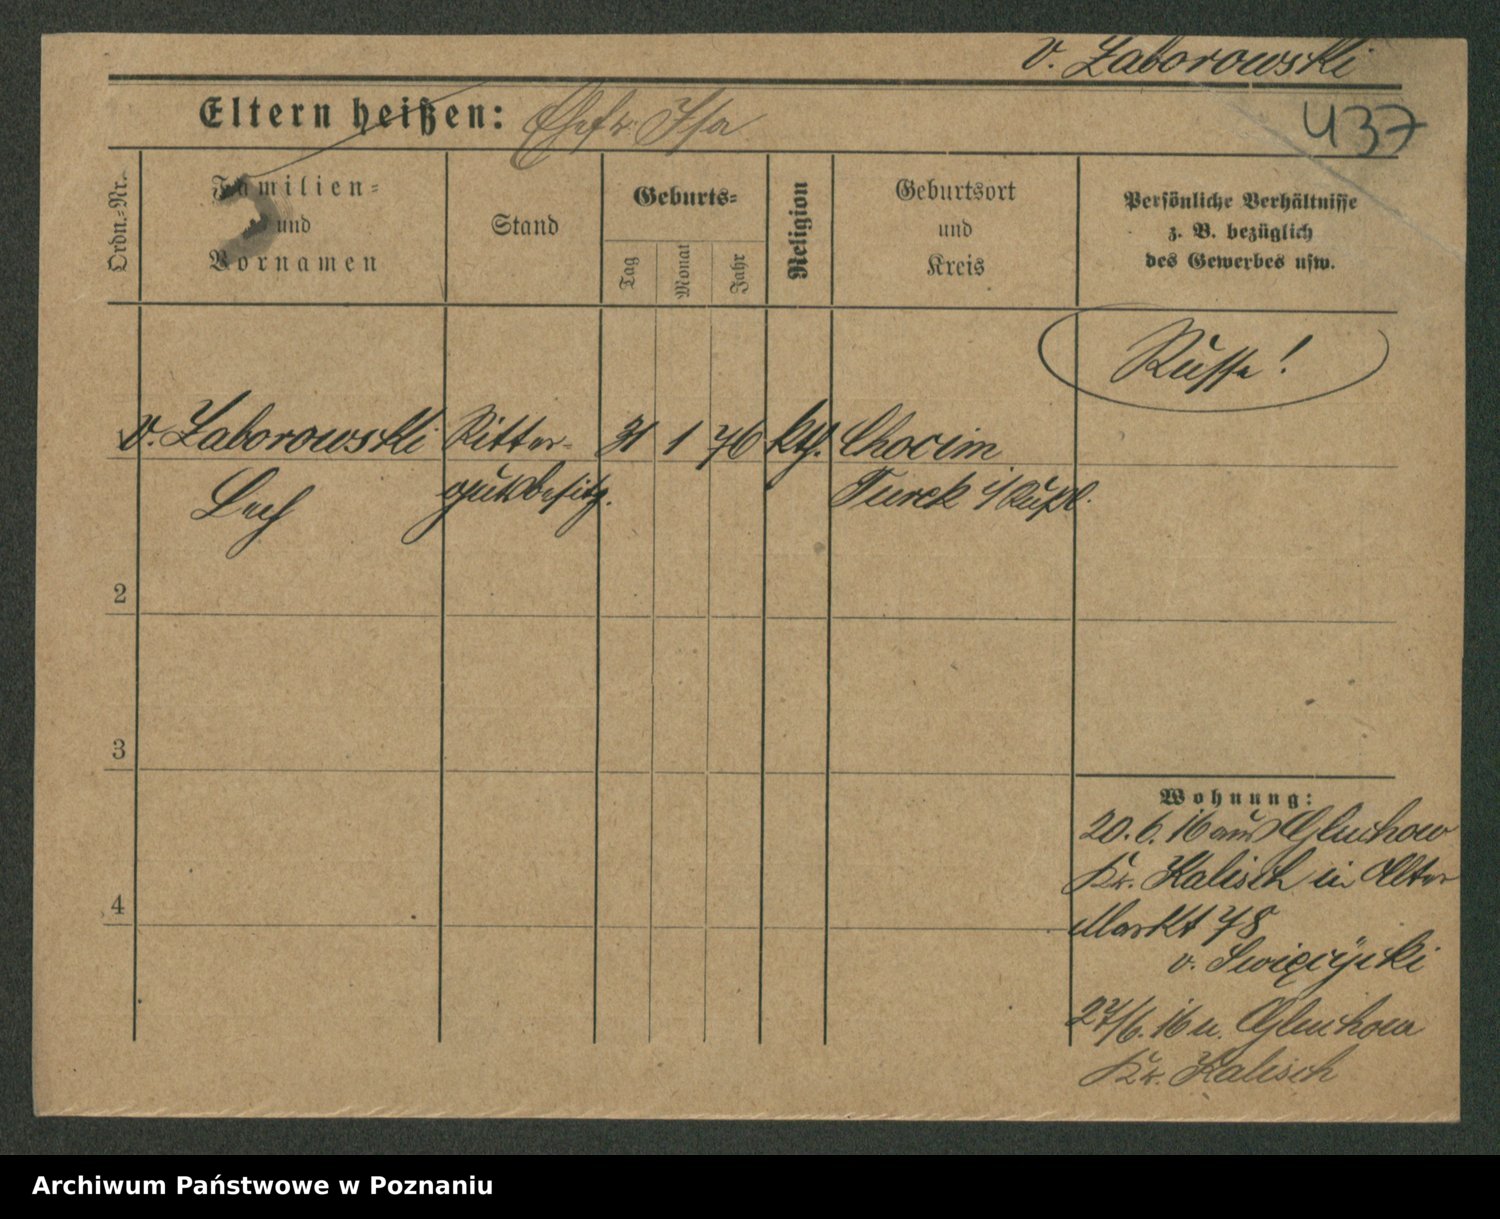 v. Zaborowski
437
Eltern heißen: Ehefr. Isa
Ordn.-Nr.
Familien-
und
Vornamen
Stand
Geburts-
Tag
Monat
Jahr
Religion
Geburtsort
und
Kreis
Persönliche Verhältnisse
z. B. bezüglich
des Gewerbes usw.
Russe!
v. Zaborowski Ritter- 31 1 76 kth. Chocim
Lech gutsbesitz. Turek i/Rußl.
2
3
4
Wohnung:
20. 6. 16 aus Gluchow
Kr. Kalisch in Alter
Markt 78
v. Swięcicki
27/6. 16 n. Gluchow
Kr. Kalisch
Archiwum Państwowe w Poznaniu